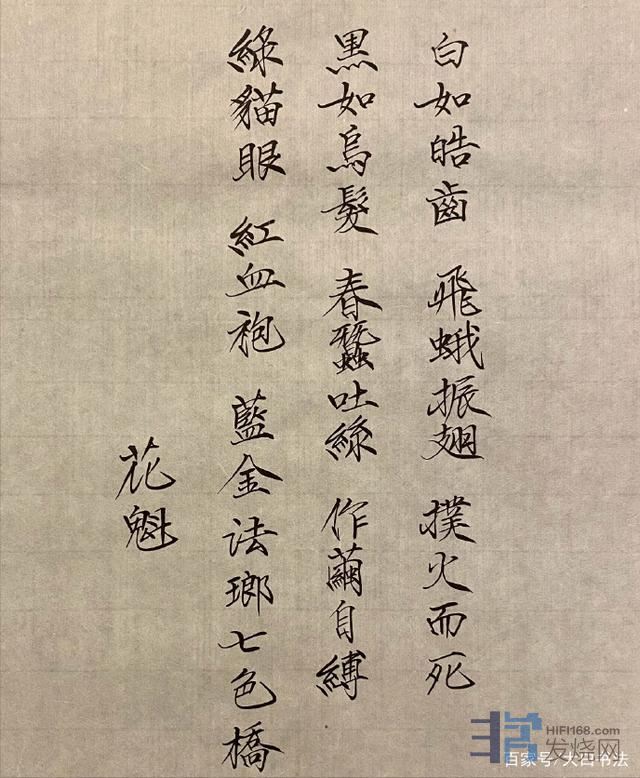 白如皓齒 飛蛾振翅 撲火而死
黑如烏髮 春蠶吐絲 作繭自縛
綠貓眼 紅血袍 藍金法瑯七色橋
花魁
HIFI168.com
发烧网
百家号/大白书法